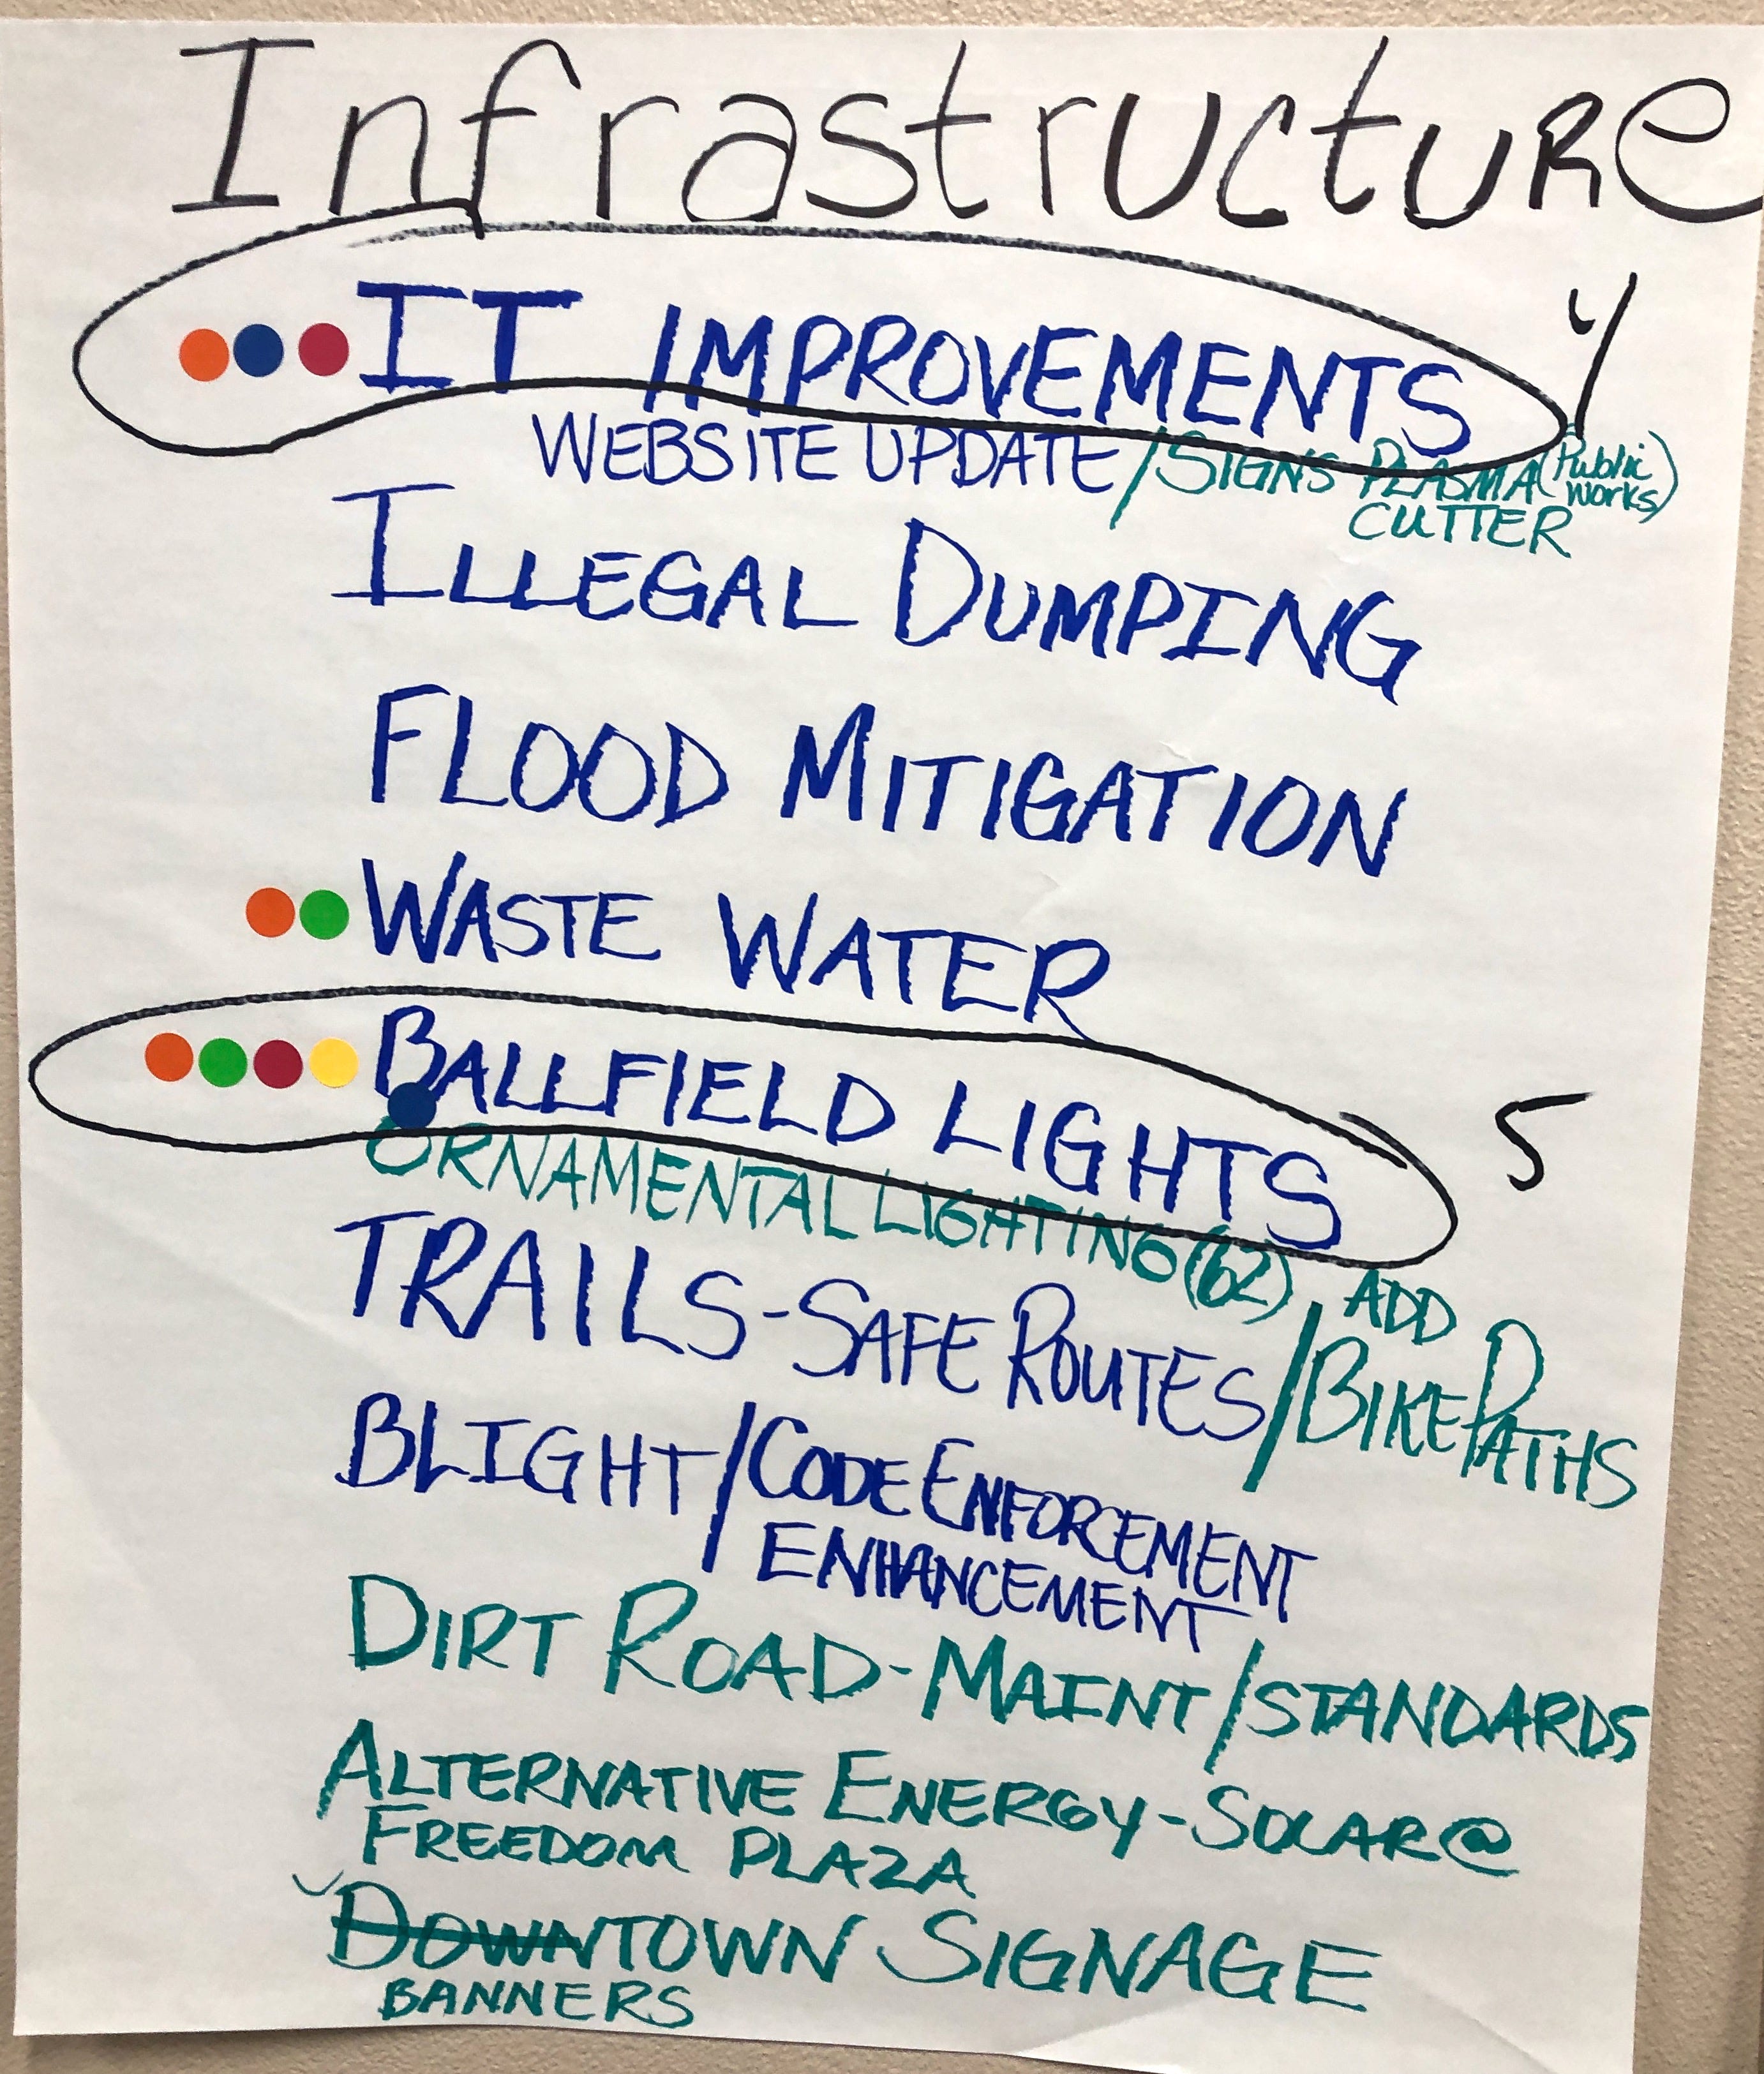 Infrastructure
IT IMPROVEMENTS 4
WEBSITE UPDATE/SIGNS PLASMA (Public Works)
CUTTER
ILLEGAL DUMPING
FLOOD MITIGATION
WASTE WATER
BALLFIELD LIGHTS 5
ORNAMENTAL LIGHTING (62)
TRAILS-SAFE ROUTES/ADD BIKE PATHS
BLIGHT/CODE ENFORCEMENT
ENHANCEMENT
DIRT ROAD-MAINT/STANDARDS
ALTERNATIVE ENERGY-SOLAR@
FREEDOM PLAZA
DOWNTOWN SIGNAGE
BANNERS